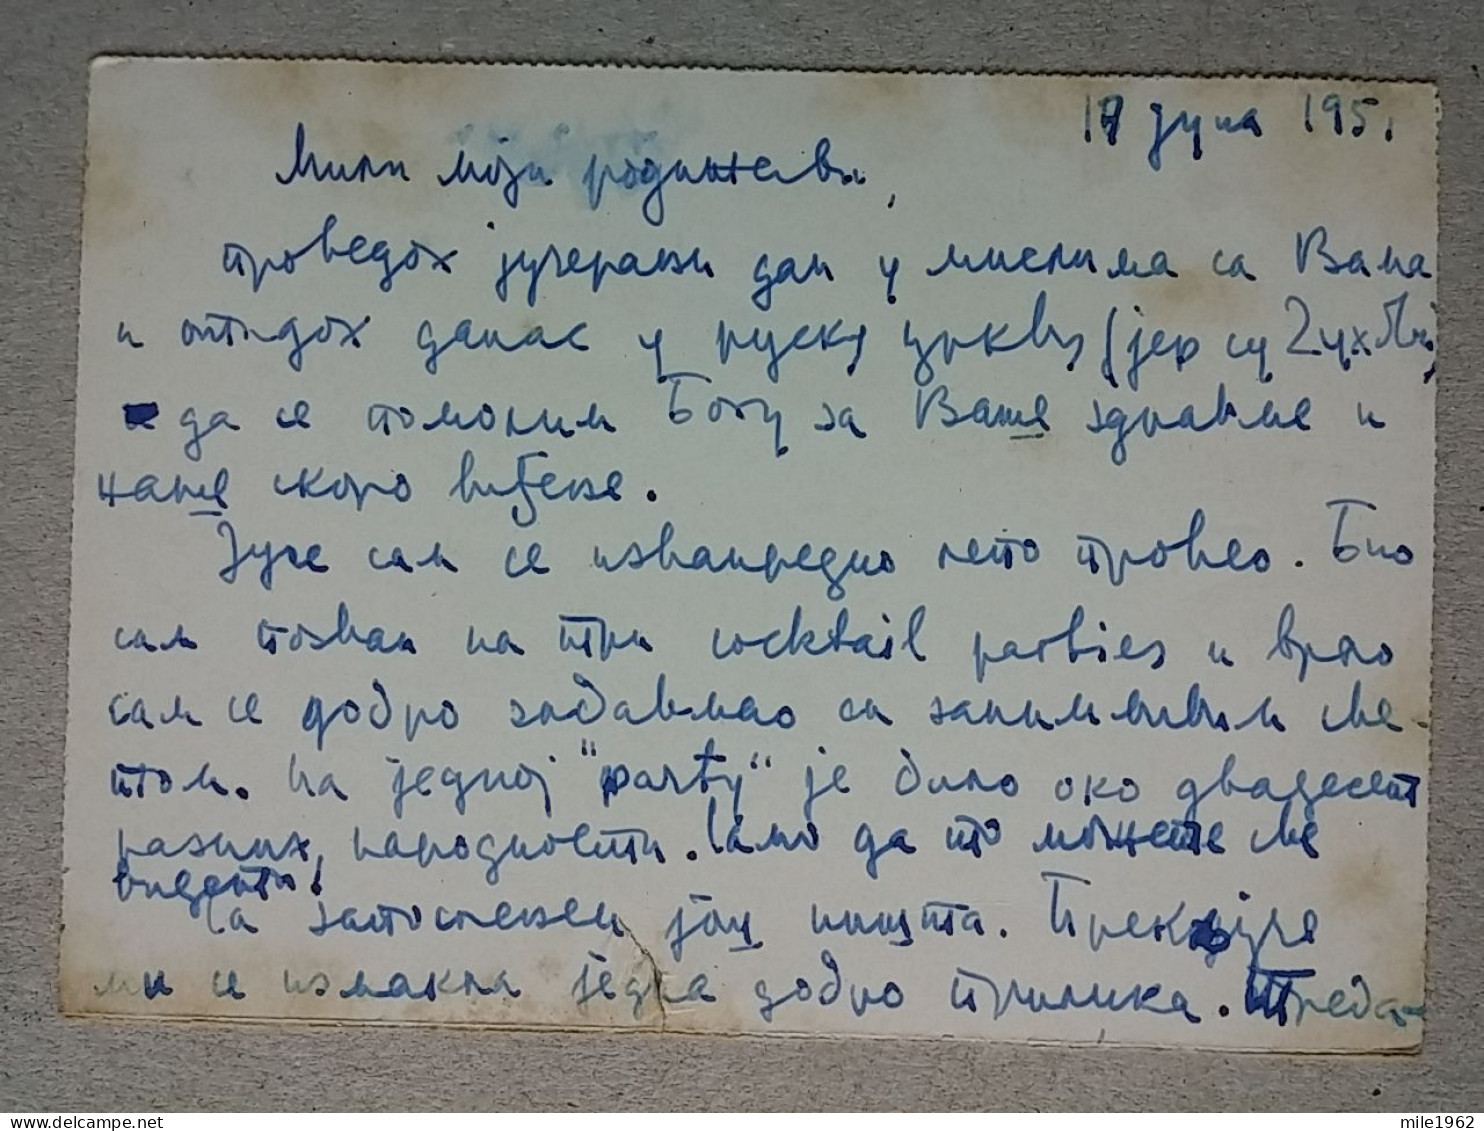 17 јуна 195.
Мили моји родитељи,
проведох јучерањи дан у мислима са Вама
и отидох данас у руску цркву (јер су Духови)
да се помолим Богу за Ваше здравље и
наше скоро виђење.
Јуче сам се изванредно лепо провео. Био
сам позван на три cocktail parties и врло
сам се добро забављао са занимљивим све-
том. На једној "party" је било око двадесет
разних народности. Само да то можете све
видети!
Са запослењем још ништа. Прекјуче
ми се измакла једна добра прилика. Преда-
mile1962